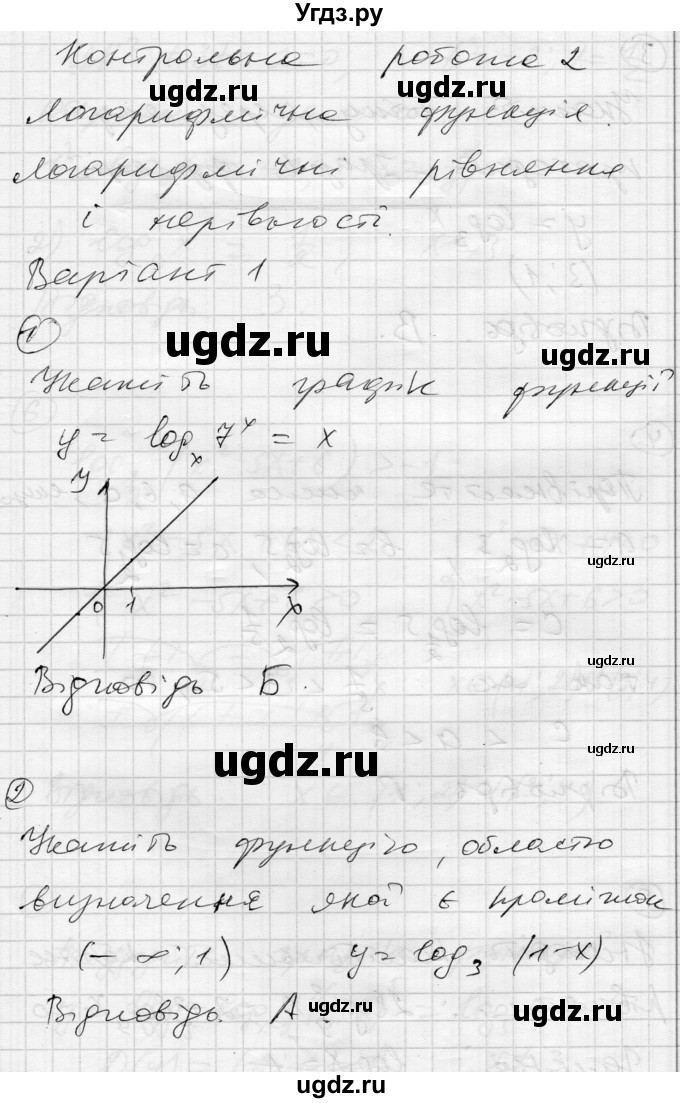 Угдз.ру
Контрольна робота 2
ugdz.ru ugdz.ru
Логарифмічна функція.
Логарифмічні рівняння
і нерівності.
Варіант 1
1
ugdz.ru
ugdz.ru
Укажіть графік функції
y = logₓ 7ˣ = x
x
y
ugdz.ru
0 1 x
ugdz.ru
Відповідь Б.
ugdz.ru
ugdz.ru
2
Укажіть функцію, областю
визначення якой є проміжок
(-∞; 1) y = log₃ (1-x)
Відповідь. А.
ugdz.ru
ugdz.ru
ugdz.ru